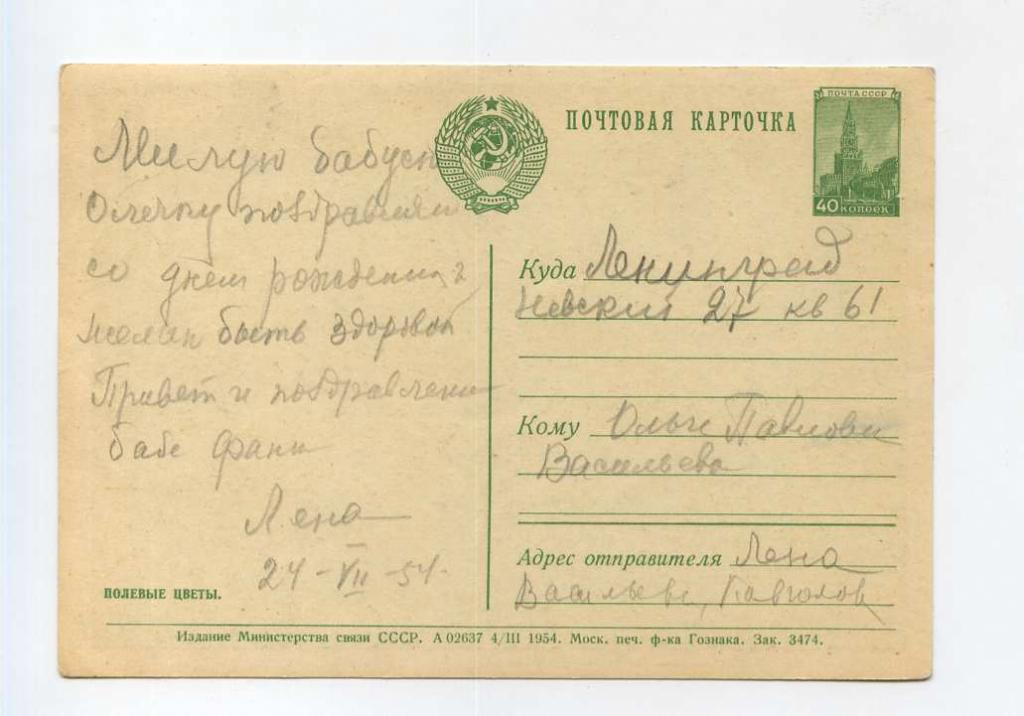 ПОЧТОВАЯ КАРТОЧКА
ПОЧТА СССР
40 КОПЕЕК
Милую бабусю
Олечку поздравляем
со днем рожденья
желаем быть здоровой
Привет и поздравления
бабе Фане
Лена
24-VII-54.
ПОЛЕВЫЕ ЦВЕТЫ.
Куда Ленинград
Невский 27 кв 61
Кому Ольге Павловне
Васильевой
Адрес отправителя Лена
Васильева, Кавголово
Издание Министерства связи СССР. А 02637 4/III 1954. Моск. печ. ф-ка Гознака. Зак. 3474.